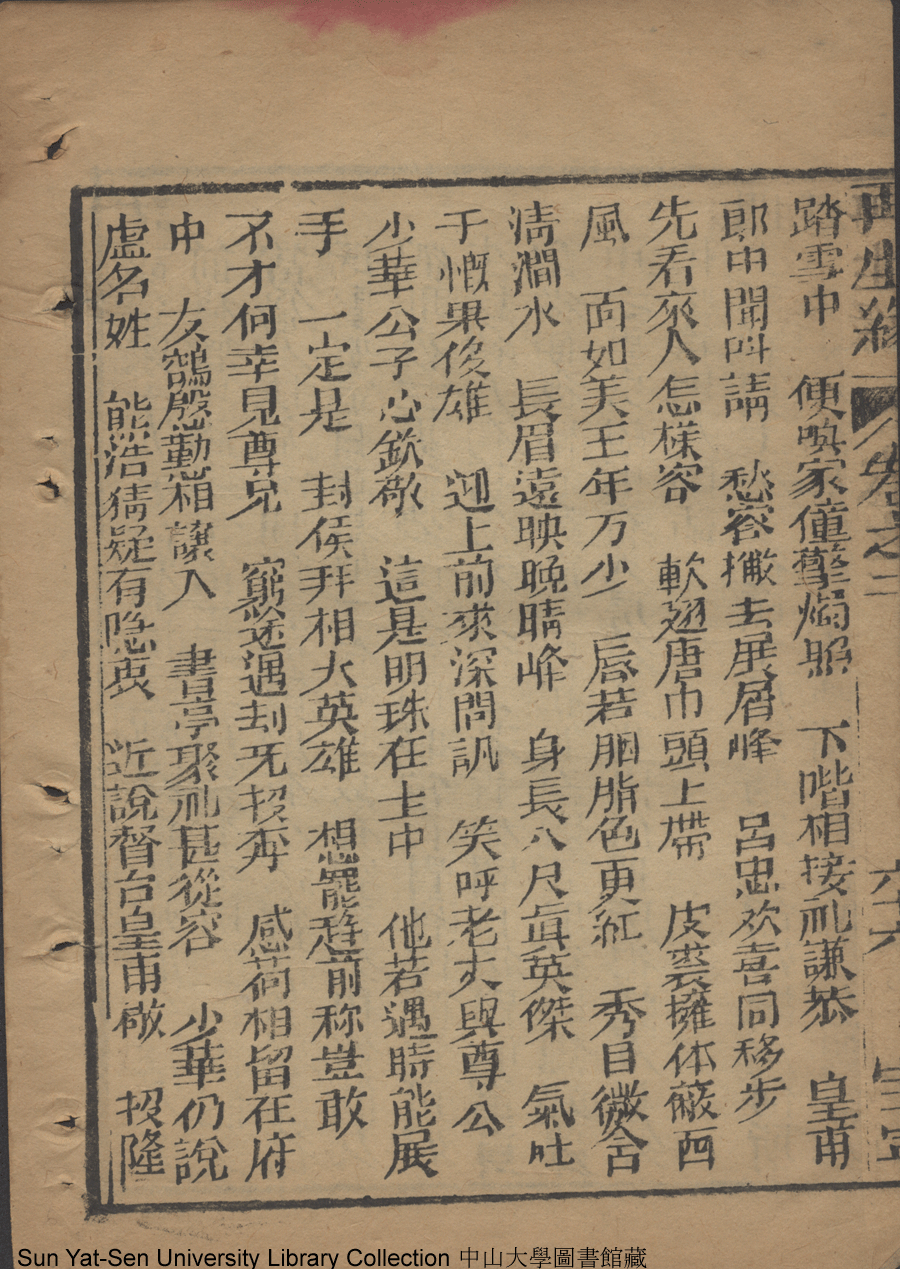 再生緣 卷之二 六十六
踏雪中 便喚家僮擎燭照 下階相接礼謙恭 皇甫
郎中聞呌請 愁容撇去展眉峰 呂忠欢喜同移步
先看來人怎樣容 軟翅唐巾頭上帶 皮裘擁体蔽西
風 面如美玉年万少 唇若胭脂色更紅 秀目微含
清澗水 長眉遠映晚晴峰 身長八尺眞英傑 氣吐
于慨果俊雄 迎上前來深問訊 笑呼老丈與尊公
少華公子心欽敬 這是明珠在土中 他若遇時能展
手 一定是 封侯拜相大英雄 想罷趋前称豈敢
不才何幸見尊兄 窮途遇刦无投奔 感荷相留在府
中 友鶴慇勤相讓入 書亭聚礼甚從容 少華仍說
虛名姓 熊浩猜疑有隐衷 近說督台皇甫敬 招隆
Sun Yat-Sen University Library Collection 中山大學圖書館藏